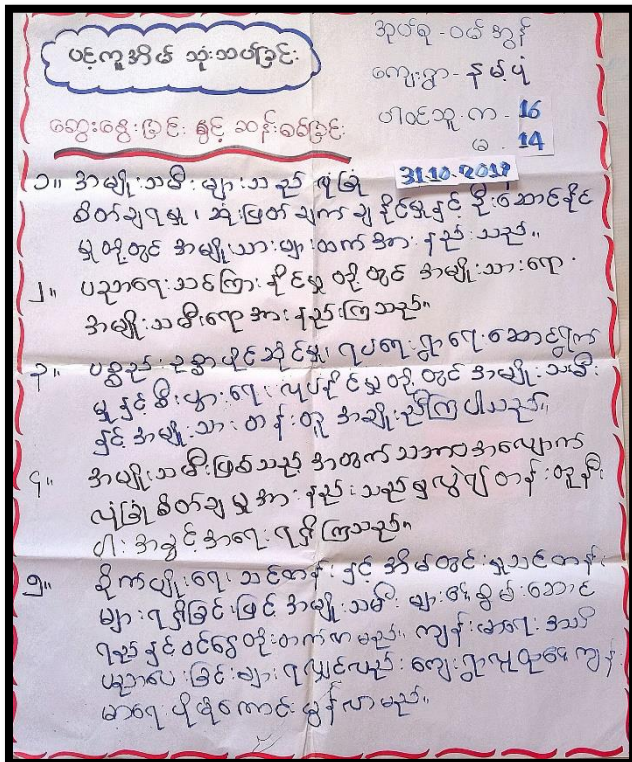 ပင့်ကူအိမ် သုံးသပ်ခြင်း
အုပ်စု - ဝမ် အွန်
ကျေးရွာ - နမ့်ပုံ
ပါဝင်သူ - က - 16
မ - 14
ဆွေးနွေးခြင်း နှင့် ဆန်းစစ်ခြင်း
31.10.2019
၁။ အမျိုးသမီးများသည် လုံခြုံ
စိတ်ချရမှု၊ ဆုံးဖြတ်ချက်ချနိုင်မှုနှင့် ဦးဆောင်နိုင်
မှုတို့တွင် အမျိုးသားများထက် အားနည်းသည်။
၂။ ပညာရေးသင်ကြားနိုင်မှု တို့တွင် အမျိုးသားရော
အမျိုးသမီးရော အားနည်းကြသည်။
၃။ ပစ္စည်းဥစ္စာပိုင်ဆိုင်မှု၊ ရပ်ရေးရွာရေးဆောင်ရွက်
မှုနှင့် စီးပွားရေးလုပ်နိုင်မှုတို့တွင် အမျိုးသမီး
နှင့် အမျိုးသား တန်းတူ အချိုးညီကြပါသည်။
၄။ အမျိုးသမီးဖြစ်သည့်အတွက် သဘာဝအလျောက်
လုံခြုံစိတ်ချမှုအားနည်းသည်မှလွဲ၍ တန်းတူနီး
ပါး အခွင့်အရေးရရှိကြသည်။
၅။ စိုက်ပျိုးရေးသင်တန်းနှင့် အိမ်တွင်းမှုသင်တန်း
များရရှိခြင်းဖြင့် အမျိုးသမီးများ၏စွမ်းဆောင်
ရည်နှင့်ဝင်ငွေတိုးတက်လာမည်။ ကျန်းမာရေးအသိ
ပညာပေးခြင်းများရလျှင်လည်း ကျေးရွာလူထု၏ကျန်း
မာရေးပိုမိုကောင်းမွန်လာမည်။